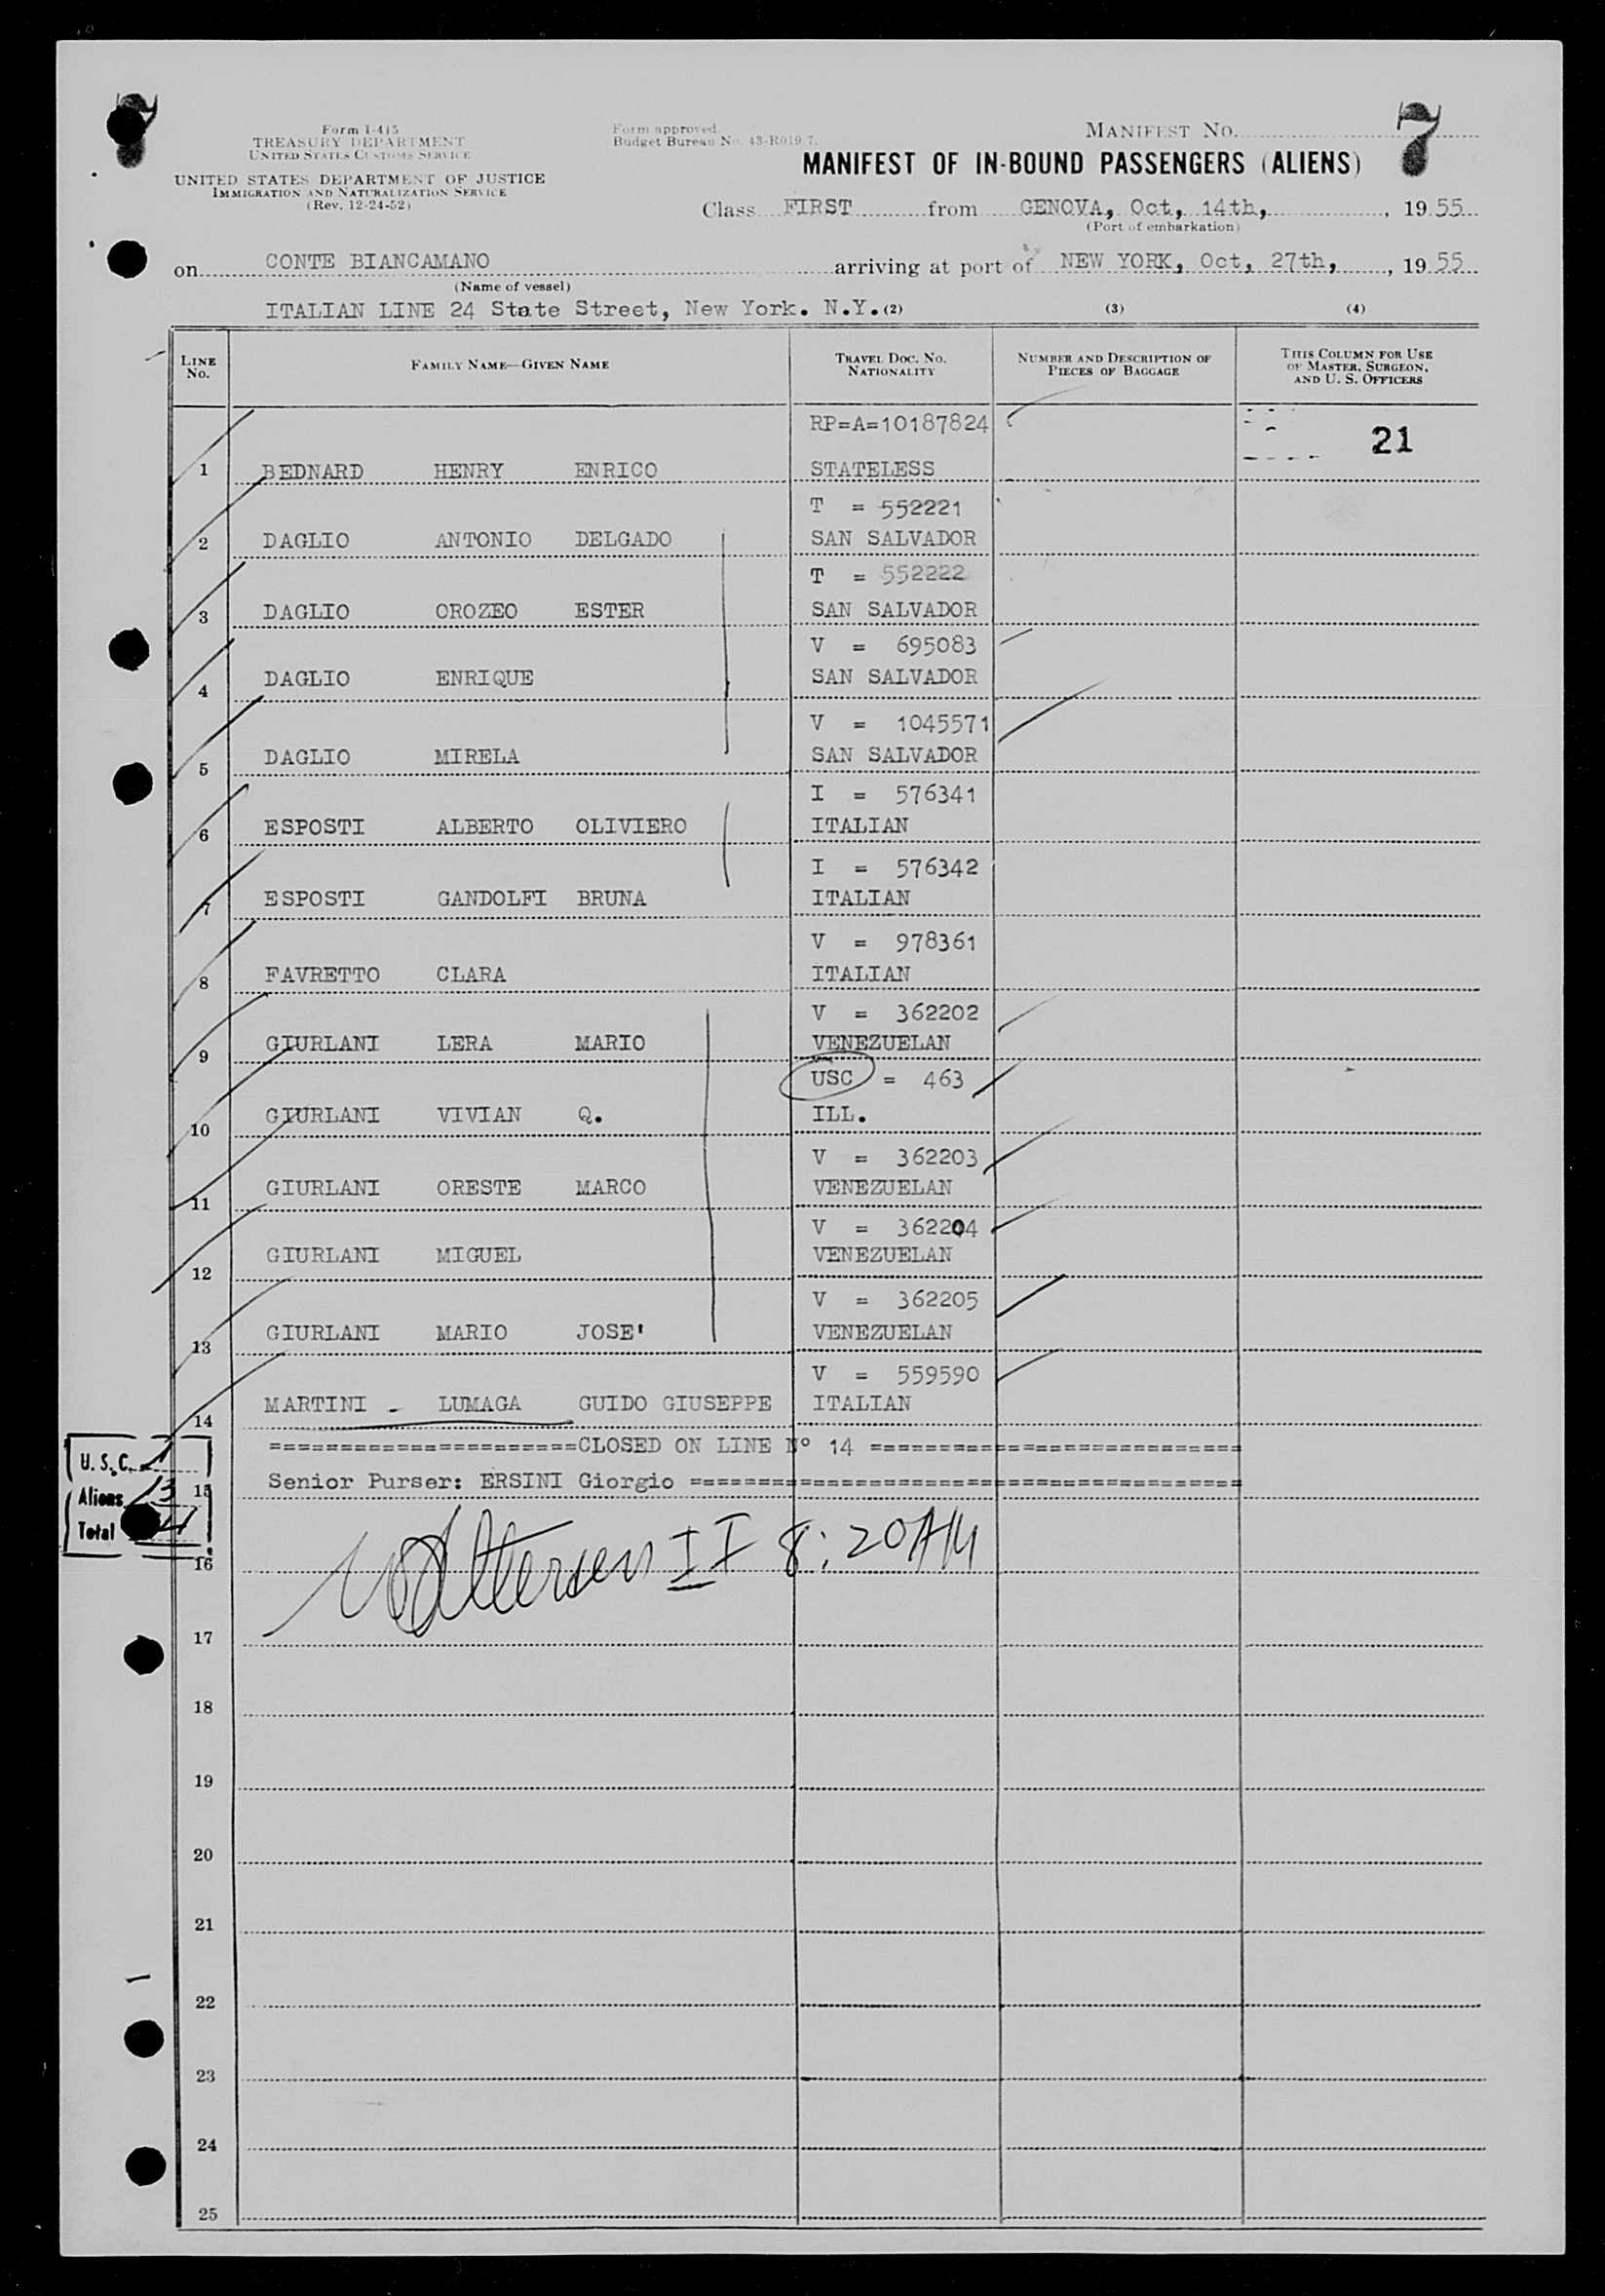 7
7
Form I-415
TREASURY DEPARTMENT
UNITED STATES CUSTOMS SERVICE
UNITED STATES DEPARTMENT OF JUSTICE
IMMIGRATION AND NATURALIZATION SERVICE
(Rev. 12-24-52)
Form approved.
Budget Bureau No. 43-R019.7.
MANIFEST NO.
MANIFEST OF IN-BOUND PASSENGERS (ALIENS)
Class FIRST from GENOVA, Oct, 14th, , 1955
(Port of embarkation)
on CONTE BIANCAMANO arriving at port of NEW YORK, Oct, 27th, , 1955
(Name of vessel)
ITALIAN LINE 24 State Street, New York. N.Y. (2) (3) (4)
LINE NO. FAMILY NAME—GIVEN NAME TRAVEL DOC. NO. NATIONALITY NUMBER AND DESCRIPTION OF PIECES OF BAGGAGE THIS COLUMN FOR USE OF MASTER, SURGEON, AND U. S. OFFICERS
RP=A=10187824 21
1 BEDNARD HENRY ENRICO STATELESS
T = 552221
2 DAGLIO ANTONIO DELGADO SAN SALVADOR
T = 552222
3 DAGLIO OROZEO ESTER SAN SALVADOR
V = 695083
4 DAGLIO ENRIQUE SAN SALVADOR
V = 1045571
5 DAGLIO MIRELA SAN SALVADOR
I = 576341
6 ESPOSTI ALBERTO OLIVIERO ITALIAN
I = 576342
7 ESPOSTI GANDOLFI BRUNA ITALIAN
V = 978361
8 FAVRETTO CLARA ITALIAN
V = 362202
9 GIURLANI LERA MARIO VENEZUELAN
USC = 463
10 GIURLANI VIVIAN Q. ILL.
V = 362203
11 GIURLANI ORESTE MARCO VENEZUELAN
V = 362204
12 GIURLANI MIGUEL VENEZUELAN
V = 362205
13 GIURLANI MARIO JOSE' VENEZUELAN
V = 559590
14 MARTINI - LUMAGA GUIDO GIUSEPPE ITALIAN
======================CLOSED ON LINE N° 14 ===========================
15 Senior Purser: ERSINI Giorgio ========================================
U. S. C. 1
Aliens 13
Total 14
16 II 8:20AM
17
18
19
20
21
22
23
24
25